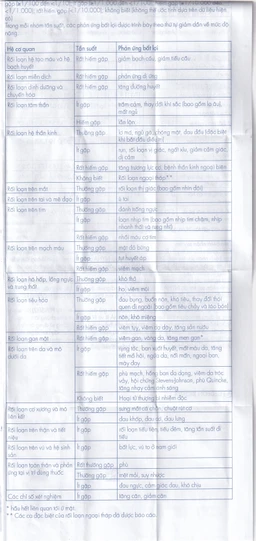 Trong mỗi nhóm tần suất, các phản ứng bất lợi được trình bày theo thứ tự giảm dần về mức độ
Hệ cơ quan Tần suất Phản ứng bất lợi
Rối loạn hệ tạo máu và hệ bạch huyết Rất hiếm gặp giảm bạch cầu, giảm tiểu cầu
Rối loạn miễn dịch Rất hiếm gặp phản ứng dị ứng
Rối loạn dinh dưỡng và chuyển hóa Rất hiếm gặp tăng đường huyết
Rối loạn tâm thần Ít gặp trầm cảm, thay đổi khí sắc (bao gồm lo âu), mất ngủ
Hiếm gặp lẫn lộn
Rối loạn hệ thần kinh Thường gặp lơ mơ, ngủ gà, chóng mặt, đau đầu (đặc biệt khi bắt đầu điều trị)
Ít gặp run, rối loạn vị giác, ngất xỉu, giảm cảm giác, dị cảm
Rất hiếm gặp tăng trương lực cơ, bệnh thần kinh ngoại biên
Không biết Rối loạn ngoại tháp**
Rối loạn trên mắt Thường gặp rối loạn thị giác (bao gồm nhìn đôi)
Rối loạn trên tai và mê đạo Ít gặp ù tai
Rối loạn trên tim Thường gặp đánh trống ngực
Ít gặp loạn nhịp tim (bao gồm nhịp tim chậm, nhịp nhanh thất và rung nhĩ)
Rất hiếm gặp nhồi máu cơ tim
Rối loạn trên mạch máu Thường gặp mặt đỏ bừng
Ít gặp tụt huyết áp
Rất hiếm gặp viêm mạch
Rối loạn hô hấp, lồng ngực và trung thất Thường gặp khó thở
Ít gặp ho, viêm mũi
Rối loạn tiêu hóa Thường gặp đau bụng, buồn nôn, khó tiêu, thay đổi thói quen đi ngoài (bao gồm tiêu chảy và táo bón)
Ít gặp nôn, khô miệng
Rất hiếm gặp viêm tụy, viêm dạ dày, tăng sản nướu
Rối loạn gan mật Rất hiếm gặp viêm gan, vàng da, tăng men gan*
Rối loạn trên da và mô dưới da Ít gặp rụng tóc, ban xuất huyết, mất màu da, tăng tiết mồ hôi, ngứa da, nổi mẩn, ngoại ban, mày đay
Rất hiếm gặp phù mạch, hồng ban đa dạng, viêm da tróc vảy, hội chứng Stevens-Johnson, phù Quincke, tăng nhạy cảm ánh sáng
Không biết Hoại tử thượng bì nhiễm độc
Rối loạn cơ xương và mô liên kết Thường gặp sưng mắt cá chân, chuột rút cơ
Ít gặp đau khớp, đau cơ, đau lưng
Rối loạn trên thận và tiết niệu Ít gặp rối loạn tiểu tiện, tiểu đêm, tăng tần suất đi tiểu
Rối loạn trên vú và hệ sinh sản Ít gặp bất lực, vú to ở nam giới
Rối loạn toàn thân và phản ứng tại vị trí dùng thuốc Rất thường gặp phù
Thường gặp mệt mỏi, suy nhược
Ít gặp đau ngực, cảm giác đau, khó chịu
Các chỉ số xét nghiệm Ít gặp tăng cân, giảm cân
* hầu hết liên quan tới ứ mật
** Các ca đặc biệt của rối loạn ngoại tháp đã được báo cáo.